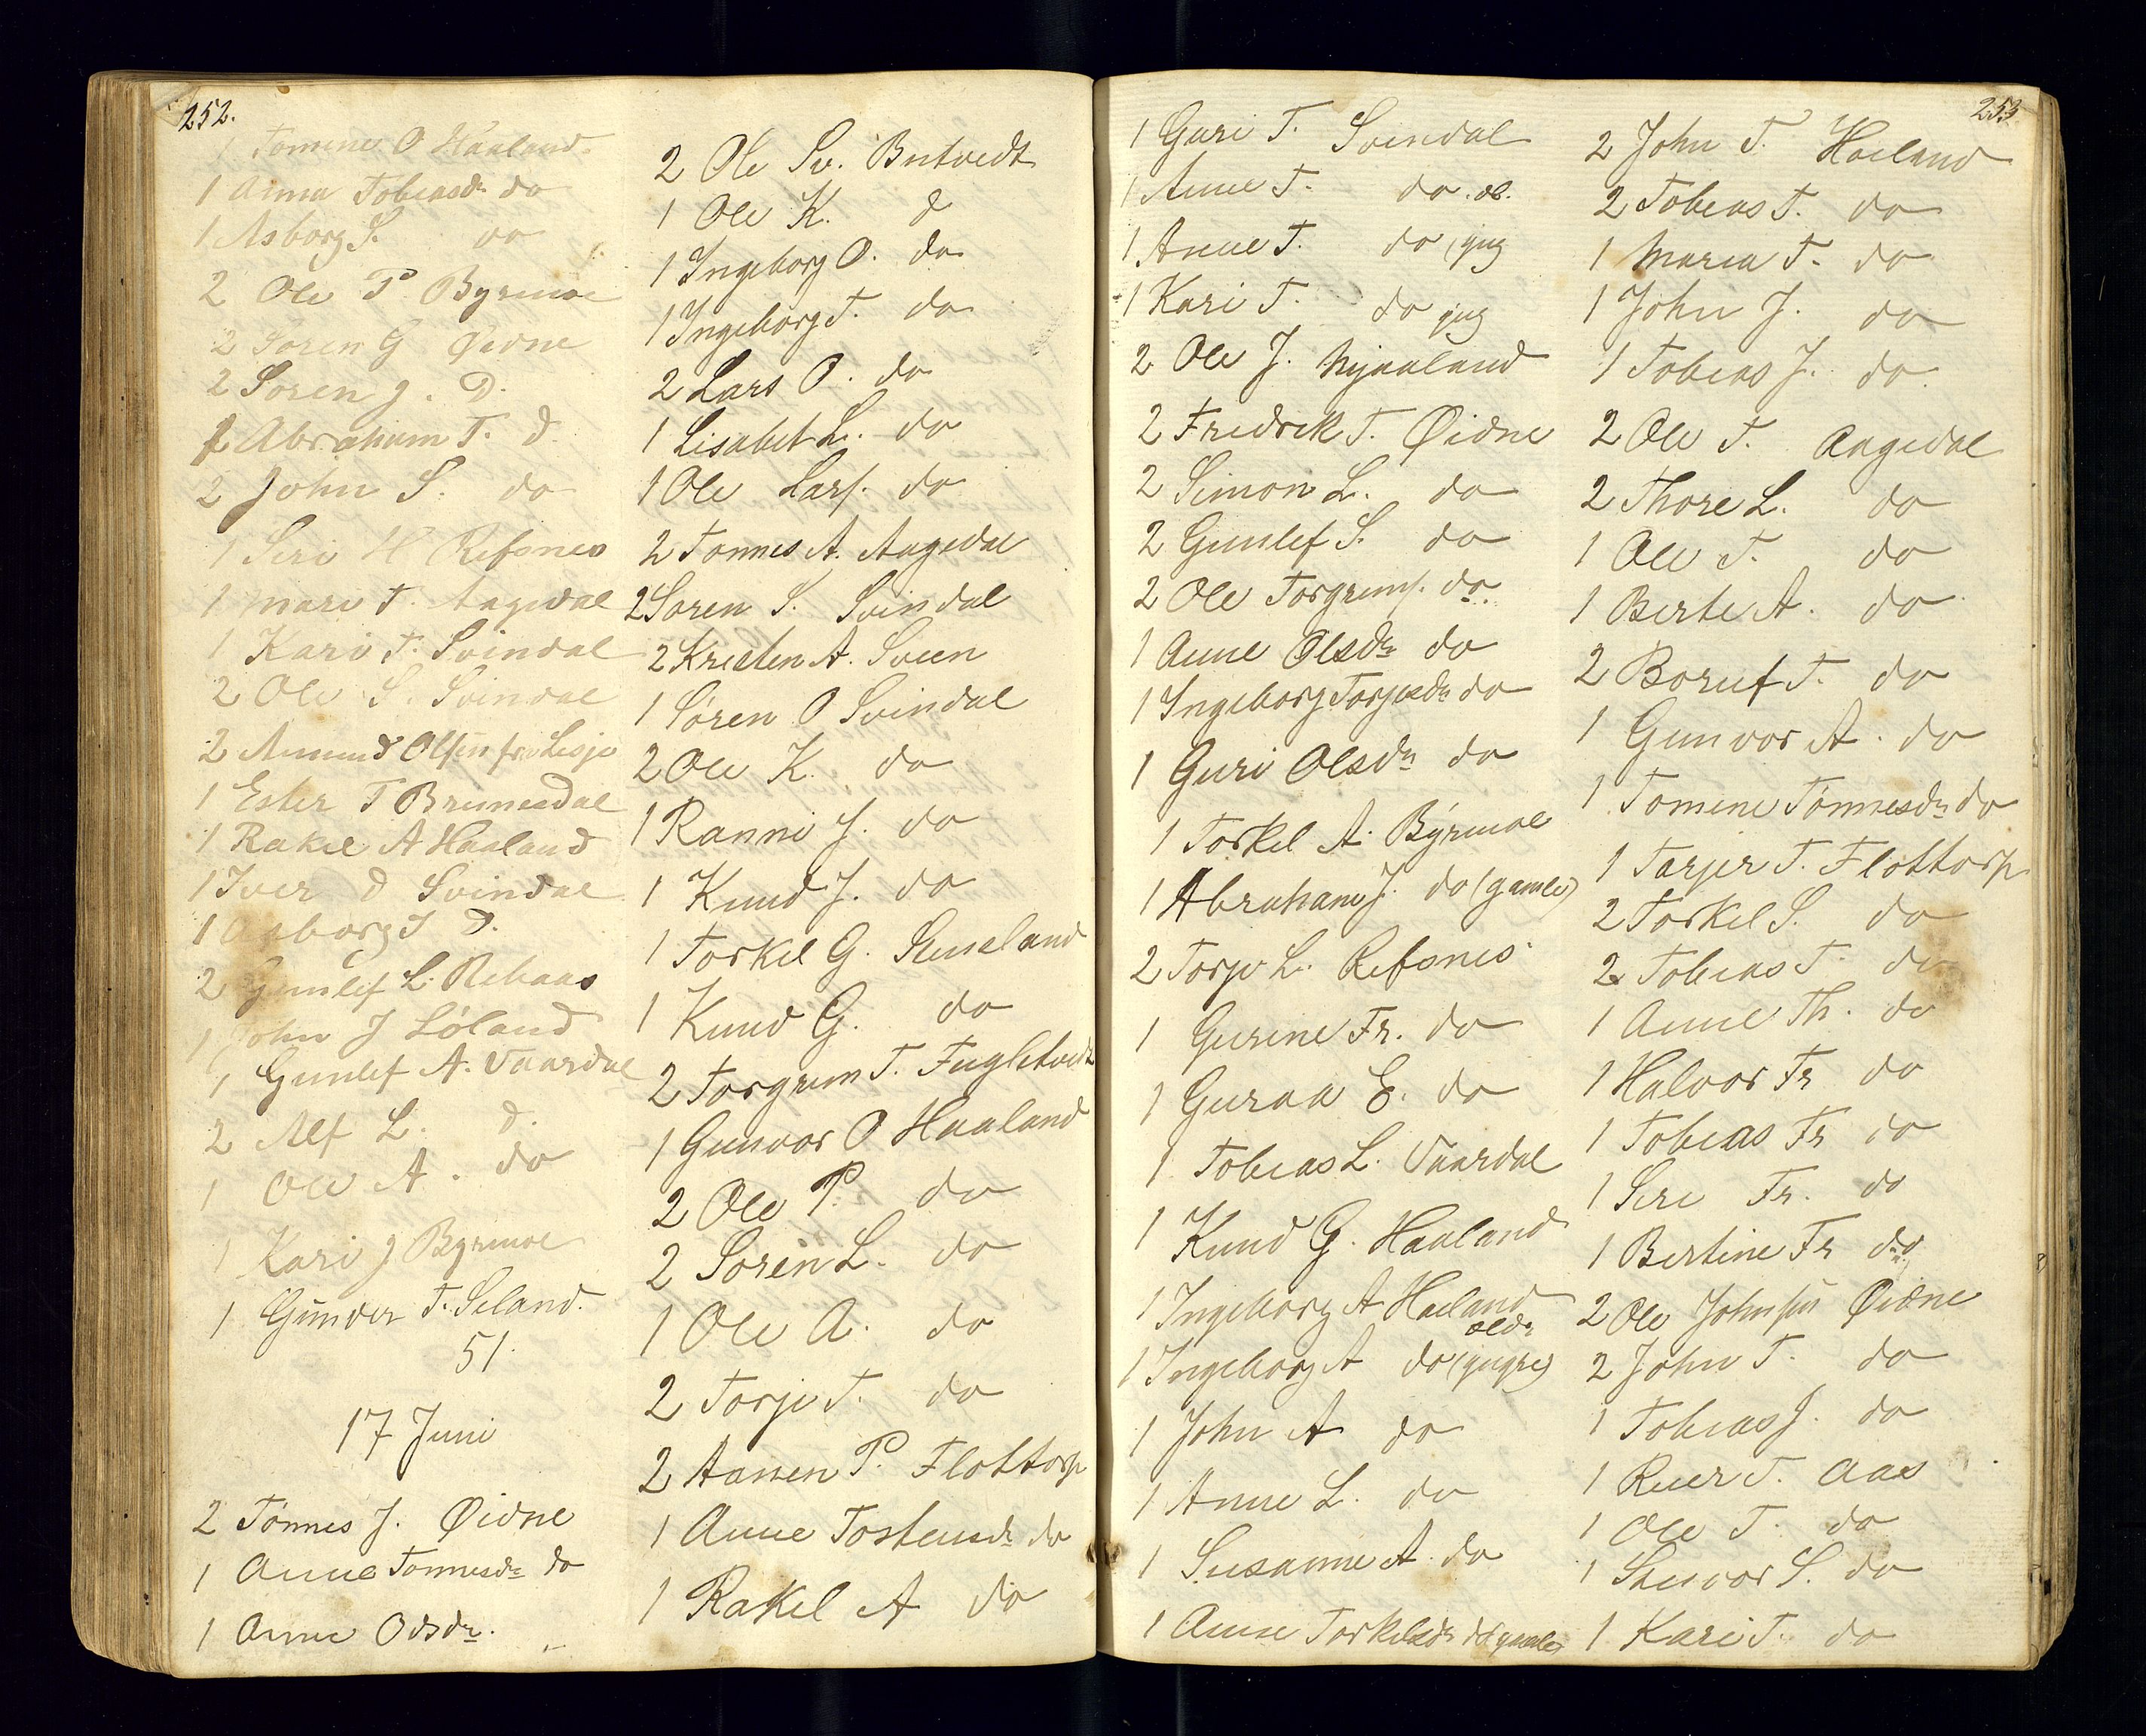 252.
1 Tomine O Haaland
1 Anna Tobiasdr do
1 Asborg S. do
2 Ole P Byrmoe
2 Soren G Øidne
2 Soren J. D.
2 Abraham T. d
2 John S. do
1 Seri H Refsnes
1 Mari T. Aagedal
1 Kari T. Svindal
2 Ole S. Svindal
2 Amund Olsen fr. Lisje
1 Ester T Brunesdal
1 Rakel A Haaland
1 Iver d Svindal
1 Asborg J D.
2 Gunlef L. Rebaas
1 John J Løland
1 Gunlef A. Vaardal
2 Alf L. d.
1 Ole A. do
1 Kari J Byrmoe
1 Gunder T. Seland.
51.
17 Juni
2 Tønnes J. Øidne
1 Anne Tønnesdr do
1 Anne Odsdr. „
2 Ole Sv. Butvedt
1 Ole K. d
1 Ingeborg O. do
1 Ingeborg T. do
2 Lars O. do
1 Lisabet L. do
1 Ole Lars. do
2 Tonnes A. Aagedal
2 Soren S. Svindal
2 Kristen A. Sveen
1 Søren O Svindal
2 Ole K. do
1 Ranni J. do
1 Knud J. do
1 Torkel G.
1 Knud G. do
2 Torgrim T. Fugletvedt
1 Gunvor O Haaland
2 Ole P. do
2 Soren L. do
1 Ole A. do
2 Torje T. do
2 Aanen P. Flottorp
1 Anne Tostensdr do
1 Rakel A do
253
1 Guri T. Svindal
1 Anne T. do
1 Anne T. do (yng
1 Kari T. do yng
2 Ole J. Mjaaland
2 Fredrik T. Øidne
2 Simon L. do
2 Gunlef S. do
2 Ole Torgrims. do.
1 Anne Olsdr do
1 Ingeborg Torjusdr do
1 Guri Olsdr do
1 Torkel A. Byrmoe
1 Abraham J. do (gamle)
2 Torje L. Refsnes
1 Gurine Fr. do
1 Guraa E. do
1 Tobias L. Vaardal
1 Knud G. Haaland
1 Ingeborg A Haaland
ældr
1 Ingeborg A do (yngre)
1 John A do
1 Anne L. do
1 Susanne A. do
1 Anne Torkelsdr do gamle
2 John T. Haaland
2 Tobias T. do
1 Maria T. do
1 John J. do
1 Tobias J. do
2 Ole T. Aagedal
2 Thore L. do
1 Ole T. do
1 Berte A. do
2 Boruf T. do
1 Gunvor A. do
1 Tomine Tønnesdr do
1 Tarjer T. Flottorp
2 Torkel S. do
2 Tobias T. do
1 Anne Th. do
1 Halvor Fr do
1 Tobias Fr do
1 Seri Fr. do
1 Bertine Fr do
2 Ole Johnsen Øidne
2 John T. do
1 Tobias J. do
1 Reier T. Aas
1 Ole T. do
1 S. do
1 Kari T. do